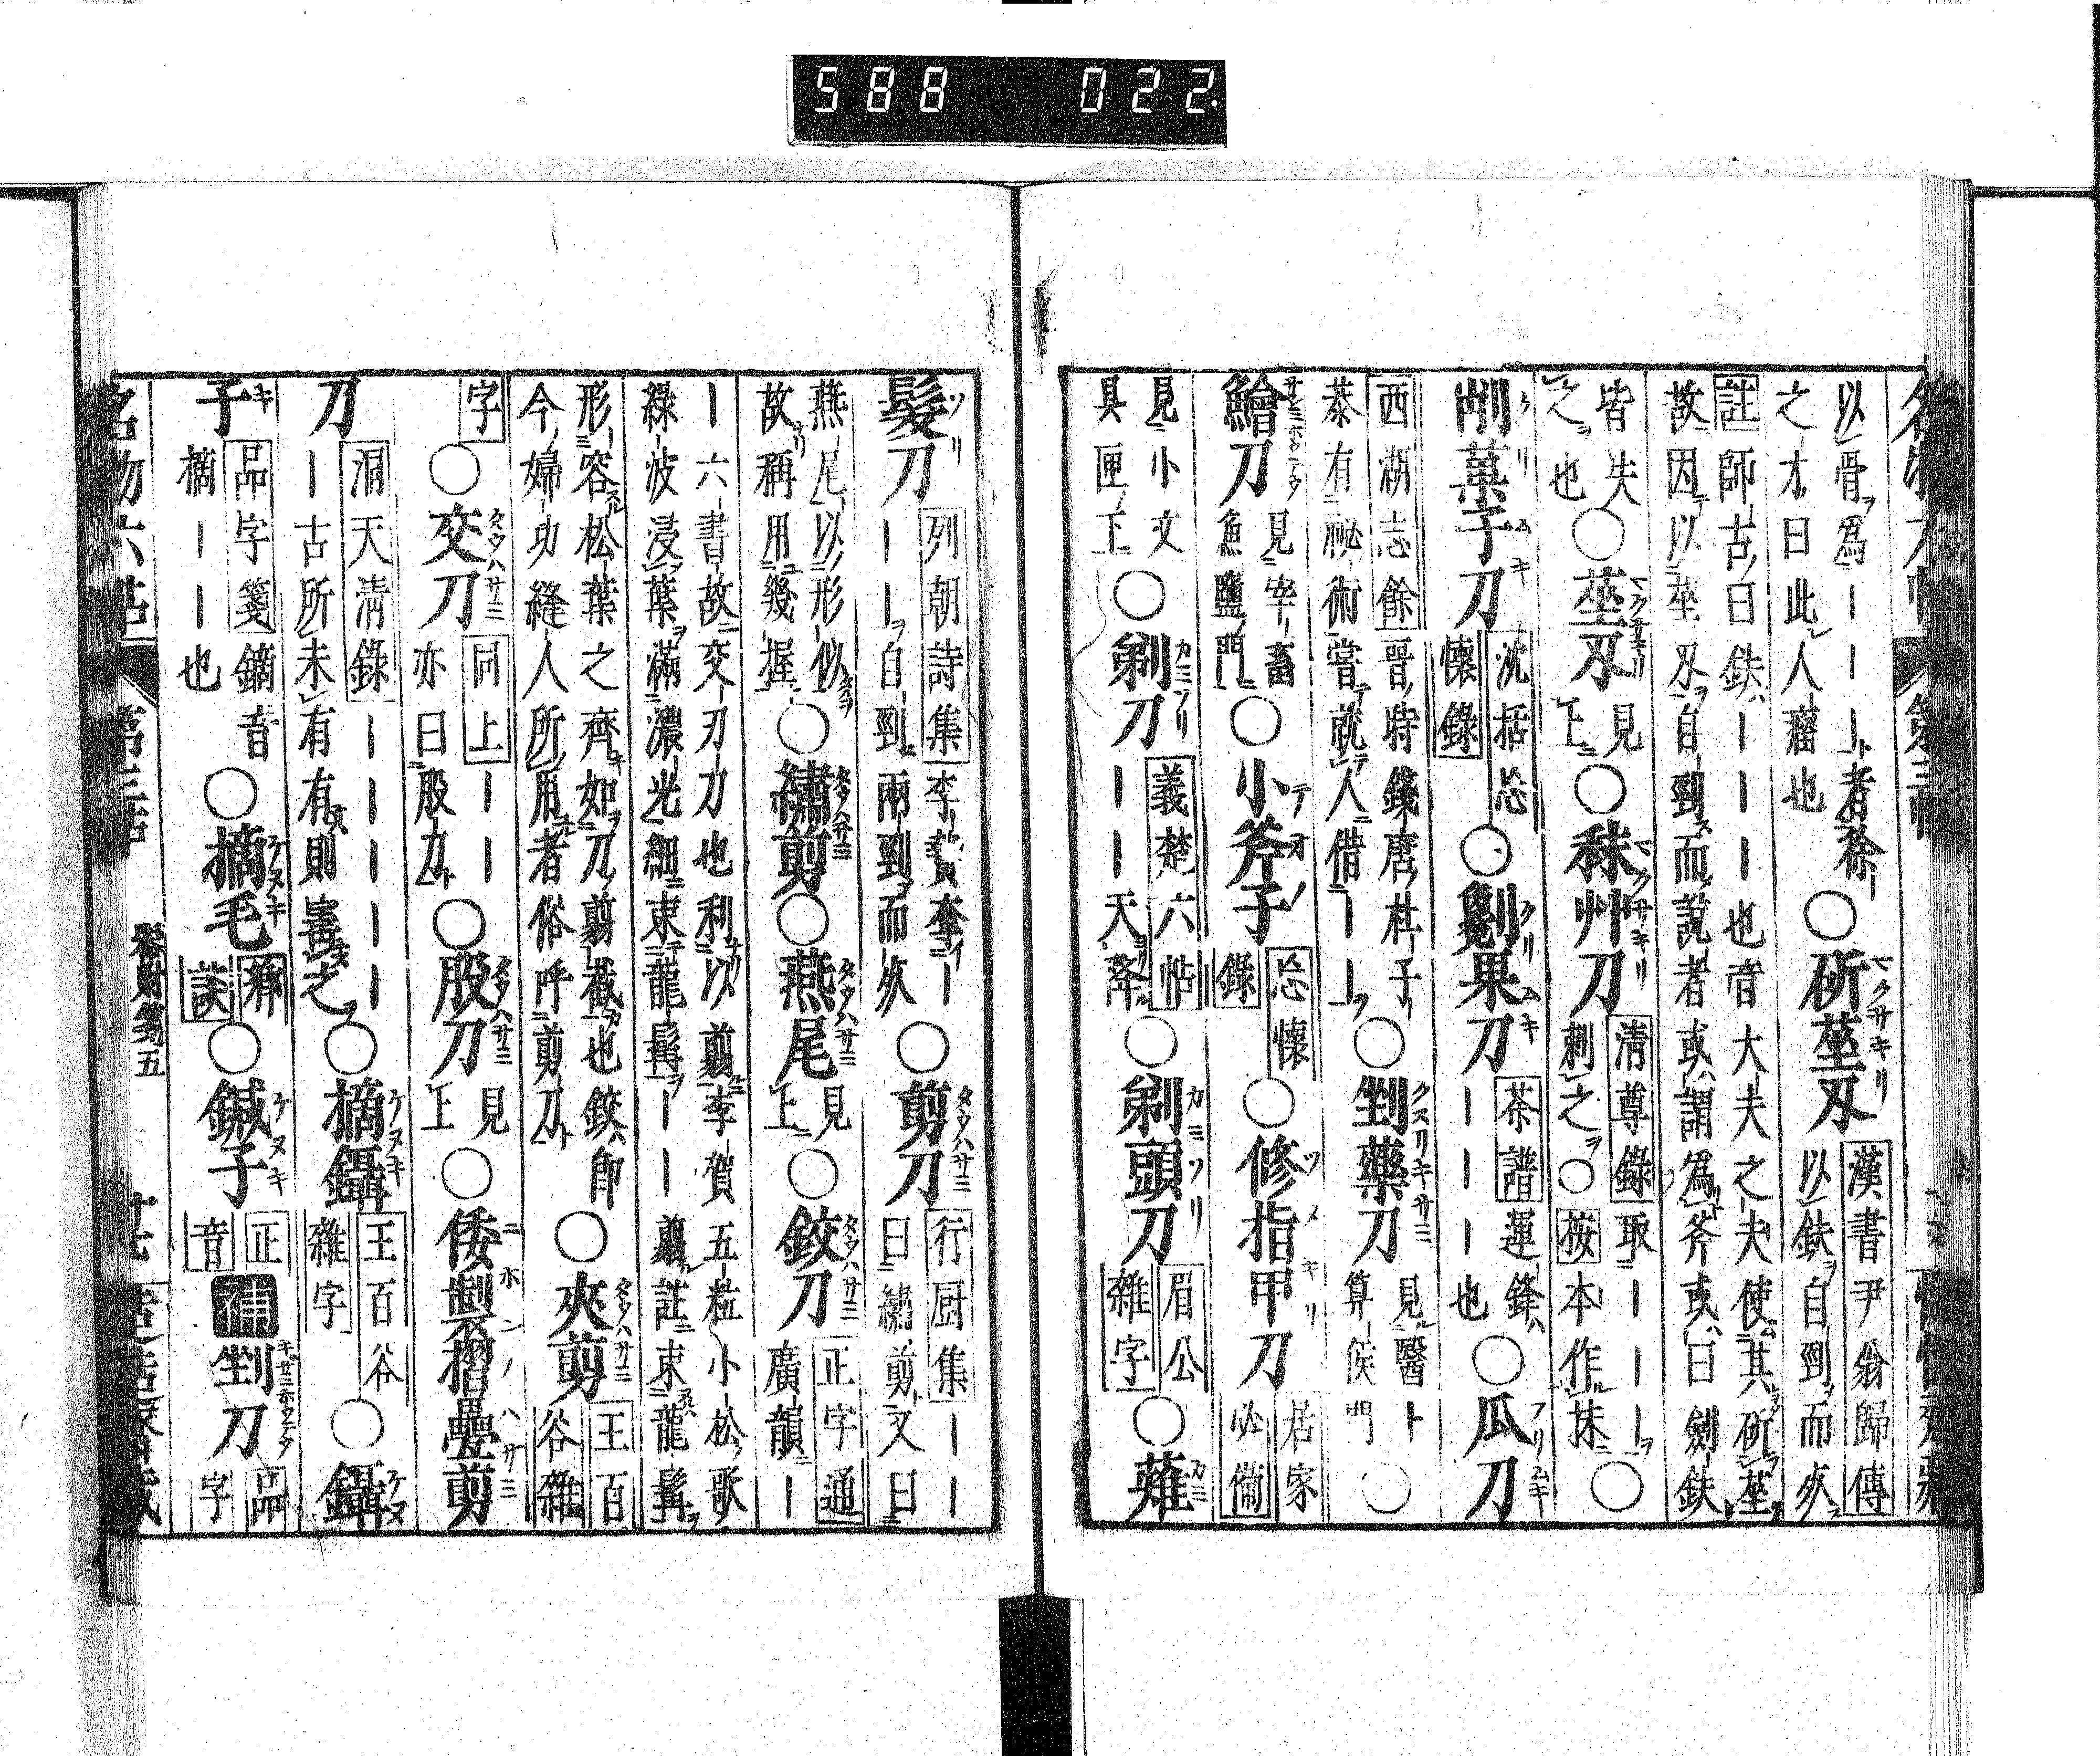 588 022
以骨爲｜｜｜｜者徐｜
之才曰此人瘤也
○斫莝刄
漢書尹翁歸傳
以鈇自剄而死
註師古曰鈇｜｜｜也音大夫之夫使其斫莝
故因以莝刄自剄而說者或謂爲斧或曰劍鈇
皆失
之也
○莝刄
見
上
○秣艸刀
清尊錄取｜｜｜
刺之○按本作抹
○
剮菓子刀
沈括忘
懷錄
○剜果刀
茶譜運鋒
｜｜｜也
○瓜刀
西湖志餘晋時錢唐杜子
恭有祕術嘗就人借｜｜
○剉藥刀
見醫卜
算候門
○
鱠刀
見宰畜
魚鹽門
○小斧子
忘懷
錄
○修指甲刀
居家
必備
見小文
具匣下
○剃刀
義楚六帖
｜｜天降
○剃頭刀
眉公
雜字
○薙
髮刀
列朝詩集李贄奪｜
｜｜自剄兩剄而死
○剪刀
行厨集｜｜
曰繡剪又曰
燕尾以形似
故稱用幾握
○繡剪○燕尾
見
上
○鉸刀
正字通
廣韻｜
｜六書故交刃刀也利以剪李賀五粒小松歌
綠波浸葉滿濃光細束龍髯｜｜剪註束龍髯
形容松葉之齊如刀剪截也鉸即
今婦功縫人所用者俗呼剪刀
○夾剪
王百
谷雜
字
○交刀
同上｜｜
亦曰股刀
○股刀
見
上
○倭製摺疊剪
刀
洞天清錄｜｜｜｜｜
｜古所未有有則寶之
○摘鑷
王百谷
雜字
○鑷
子
品字箋鏑音
摘｜｜也
○摘毛
○鍼子
正
音
補
剉刀
品
字
名物六帖
第三帖
器財箋五